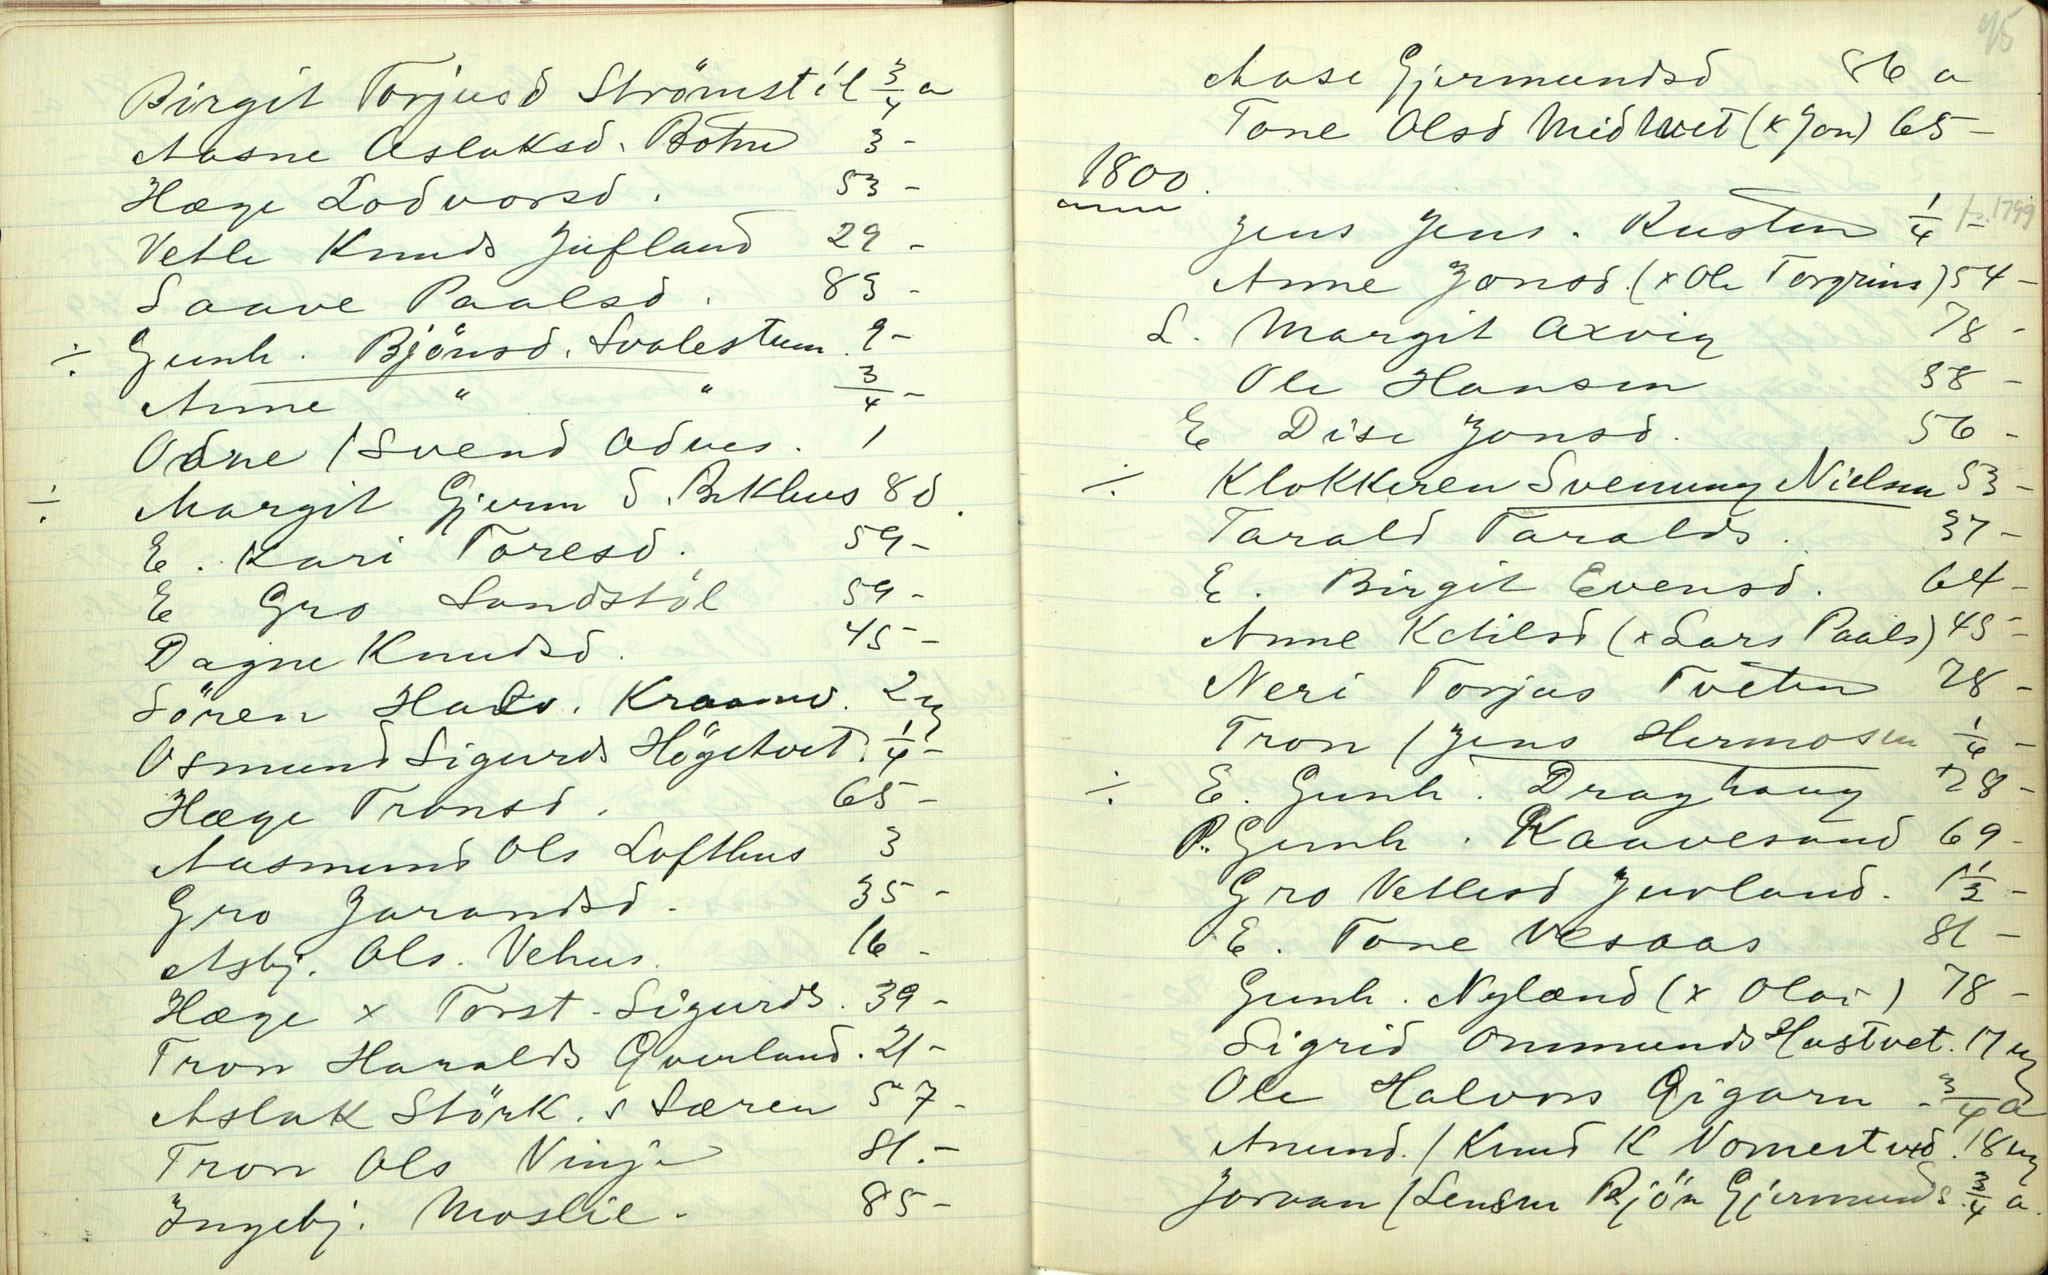 Birgit Torjusd Strömstöl 3/4 a
Aasne Aslaksd. Botn 3 -
Hæge Lodvorsd. 53 -
Vetle Knuds Jufland 29 -
Saave Paalsd. 83 -
÷ Gunh. Bjönsd. Svalestuen. 9 -
Anne " " 3/4 -
Odne / Svend Odnes. 1
÷ Margit Gjerm d. Bekhus 8 d.
E. Kari Toresd. 59 -
E Gro Sandstöl 59 -
Dagne Knudsd. 45 -
Sören Halv. Kraamv. 2 u
Osmund Sigurds Högetvet. 1/4 -
Hæge Tronsd. 65 -
Aasmund Ols Lofthus 3
Gro Jarandsd. 35 -
Asbj. Ols. Vehus. 16 -
Hæge x Torst. Sigurds. 39 -
Tron Haralds Qverland. 21 -
Aslak Störk. s Særen 57 -
Tron Ols Vinje 81. -
Ingebj. Moslie. 85 -
95
Aase Gjermundsd 86 a
Tone Olsd Midtvet (x Jon) 65 -
1800.
Jens Jens. Rusten 1/4 - f. 1799
Anne Jonsd. (x Ole Torgrims) 54 -
L. Margit Axvig 78 -
Ole Hansen 38 -
E Dise Jonsd. 56 -
÷ Klokkeren Svenung Nielsen 53 -
Tarald Taralds. 37 -
E. Birgit Evensd. 64 -
Anne Ketilsd (x Lars Paals) 45 -
Neri Torjus Tveten 78 -
Tron / Jens Hermosen 1/4 -
÷ E. Gunh. Draghaug 78 -
P. Gunh. Kaavesand 69 -
Gro Vetlesd Juvland. 1 1/2 -
E. Tone Vesaas 81 -
Gunh. Nylænd (x Olav) 78 -
Sigrid Ommunds Hastvet. 17 u
Ole Halvors Qigarn - 3/4 a
Anund. / Knud K Nomestved. 18 u
Jorvan / Lensm Bjön Gjermunds. 3/4 a.